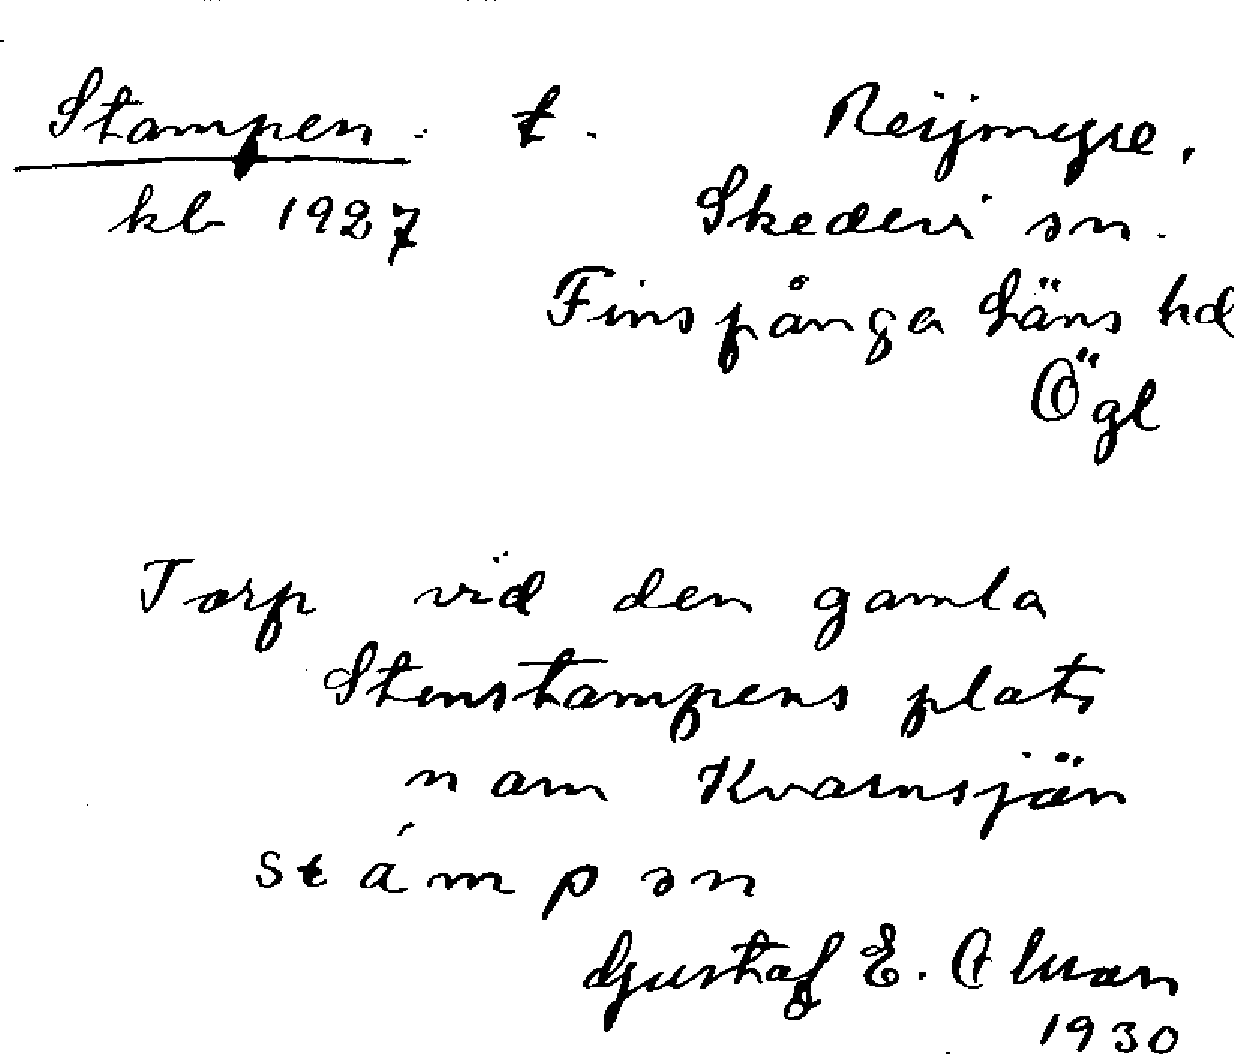 Stampen. t. Reijmyre,
kb 1927 Skedevi sn.
Finspånga läns hd
Ögl
Torp vid den gamla
Stenstampens plats
n om Kvarnsjön
stámpən
Gustaf E.
1930